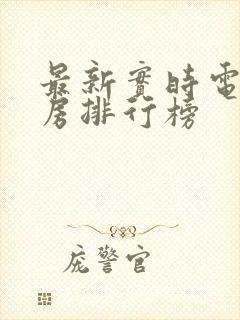 最新實時電
房排行榜
庞警官